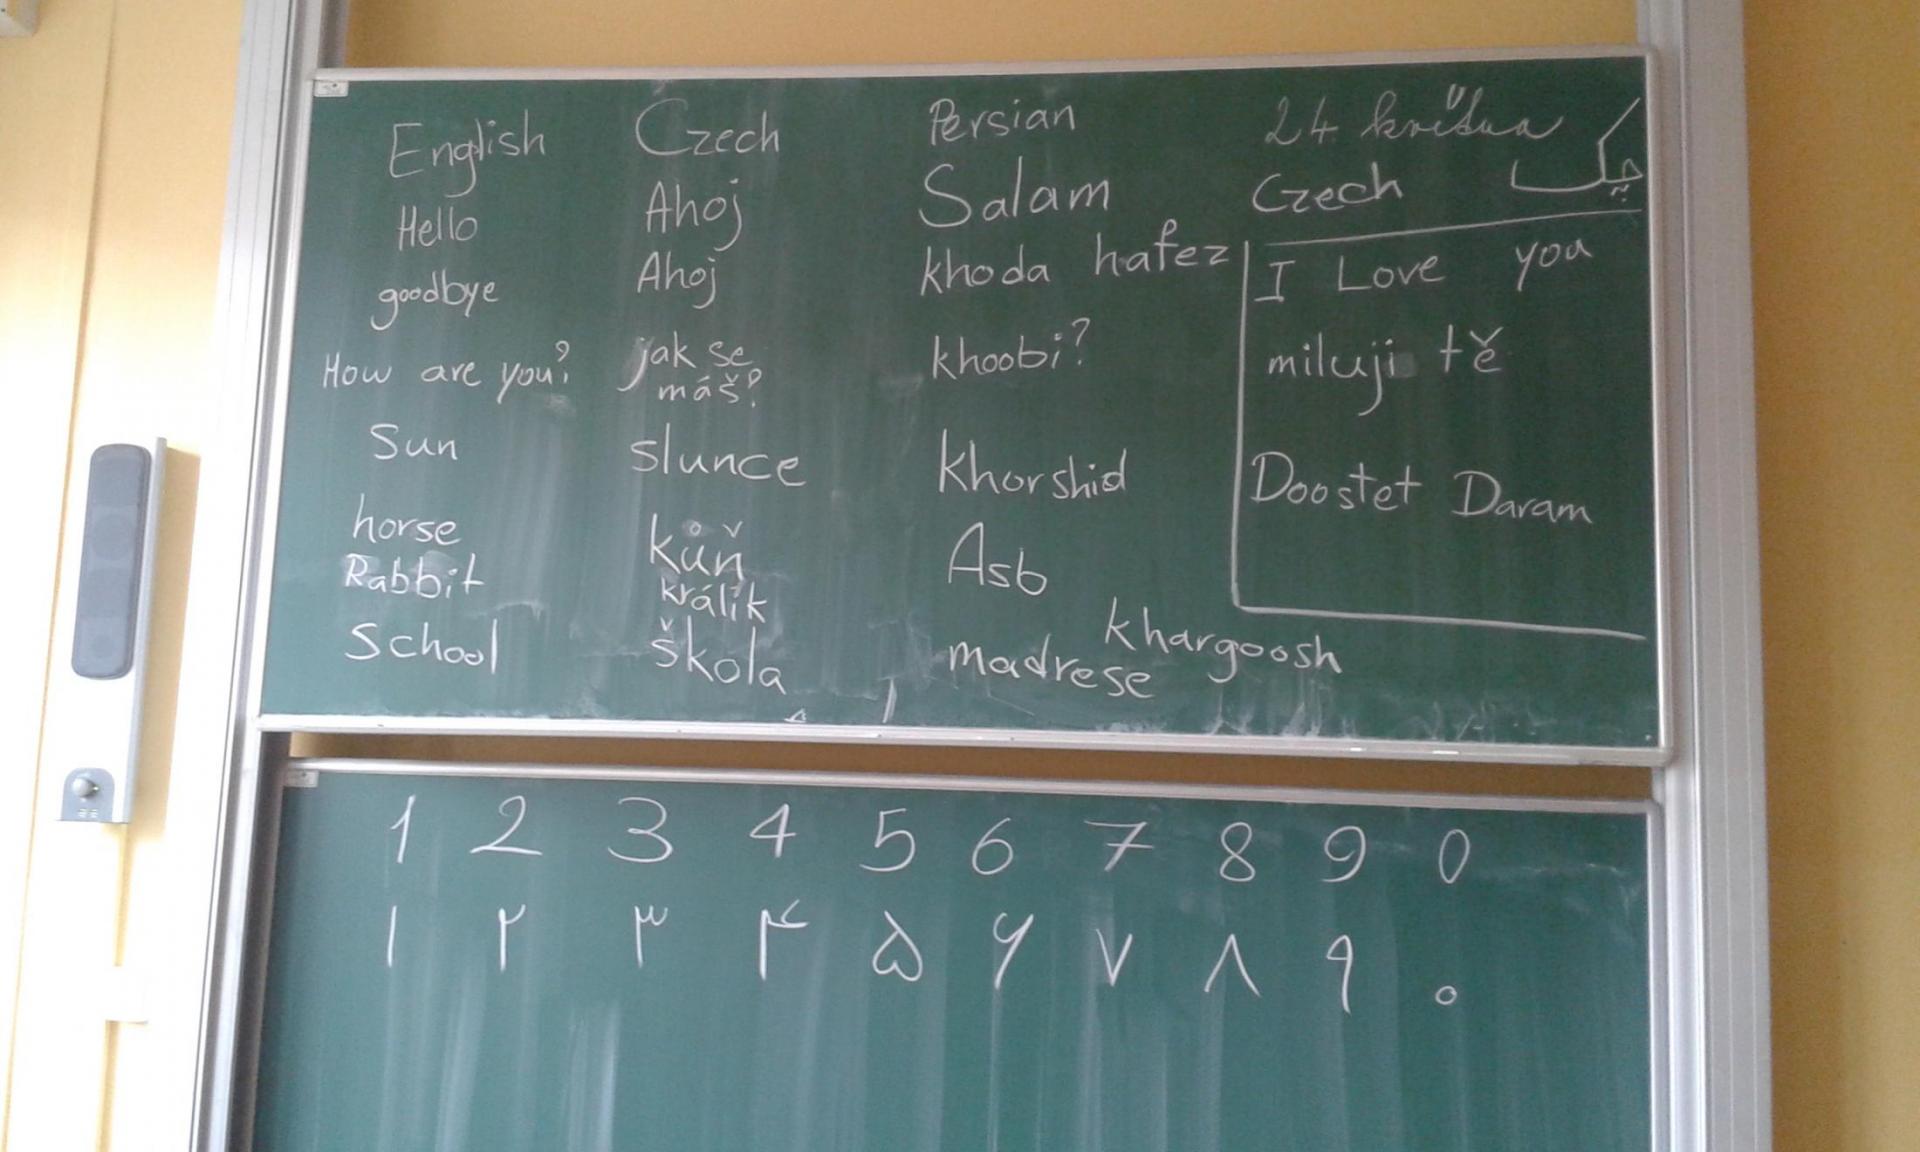 English Czech Persian 24 května
Hello Ahoj Salam Czech چک
goodbye Ahoj khoda hafez
How are you? jak se máš? khoobi?
Sun slunce khorshid
horse kůň Asb
Rabbit králík khargoosh
School škola madrese
I Love you
miluji tě
Doostet Daram
1 2 3 4 5 6 7 8 9 0
۱ ۲ ۳ ۴ ۵ ۶ ۷ ۸ ۹ ۰